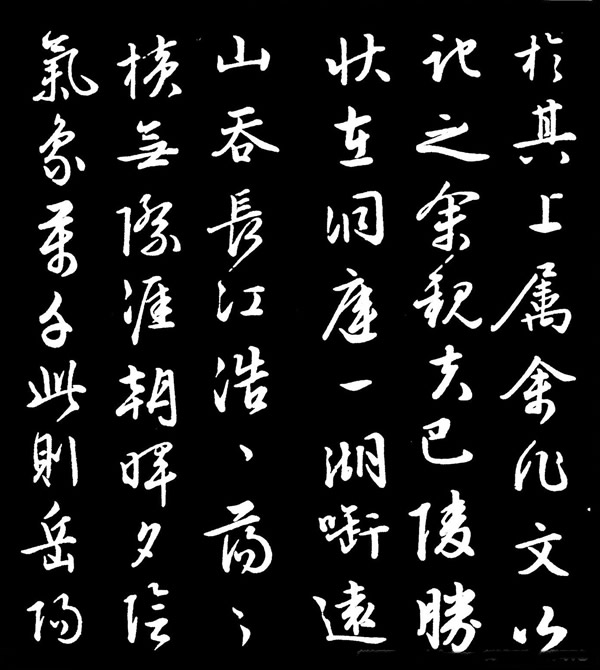 於其上属余作文以
記之余觀夫巴陵勝
状在洞庭一湖啣遠
山吞長江浩〻蕩〻
橫無際涯朝暉夕陰
氣象萬千此則岳陽